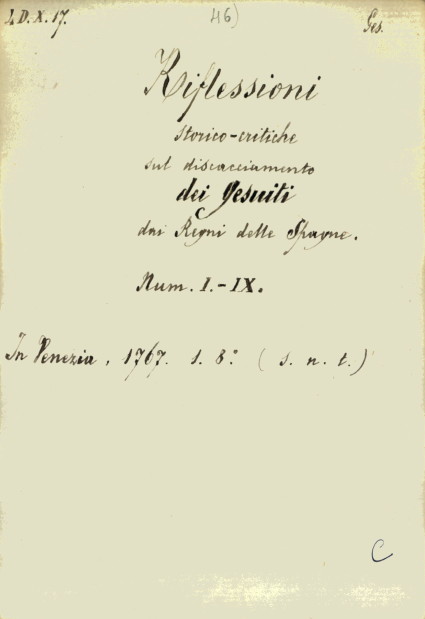 I. D. X. 17.
46)
Ges.
Riflessioni
storico-critiche
sul discacciamento
dei Gesuiti
dai Regni delle Spagne.
Num. I.-IX.
In Venezia, 1767. 1. 8.° ( s. n. t.)
C